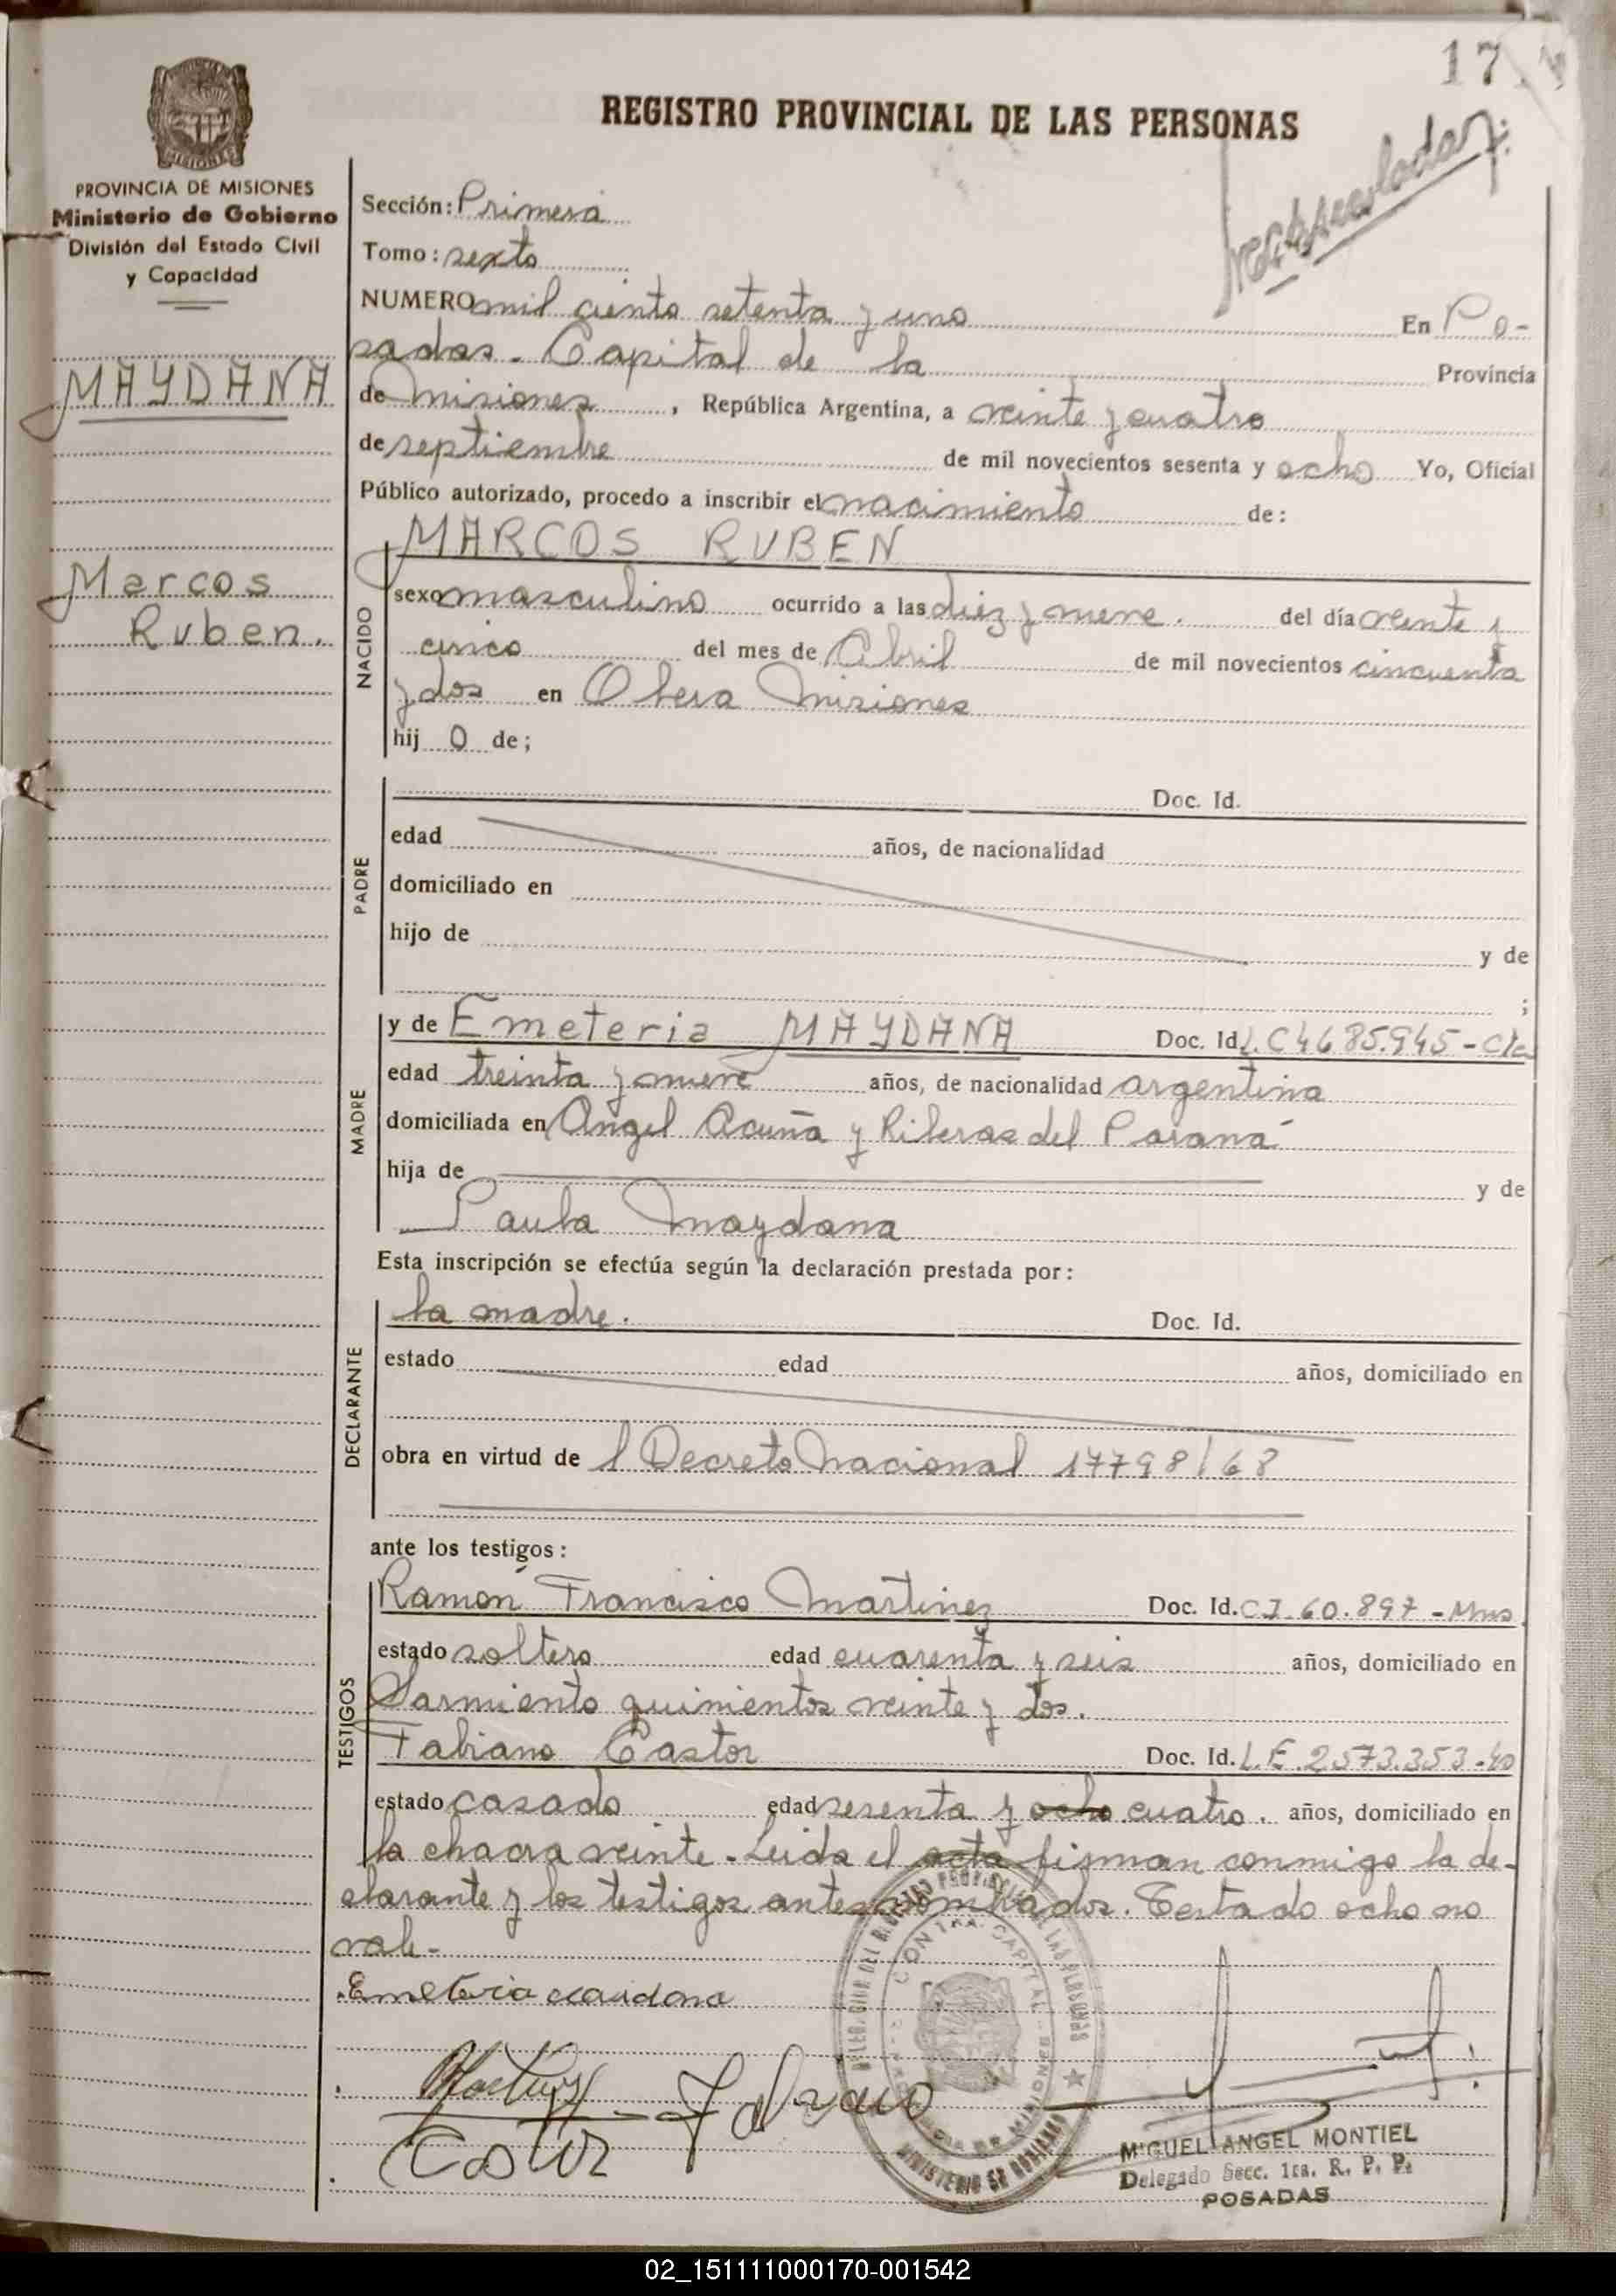 17
REGISTRO PROVINCIAL DE LAS PERSONAS
MISIONES
PROVINCIA DE MISIONES
Ministerio de Gobierno
División del Estado Civil
y Capacidad
MAYDANA
Marcos
Ruben.
Sección: Primera
Tomo: sexto
NUMERO mil ciento setenta y uno En Po-
sadas. Capital de la Provincia
de Misiones, República Argentina, a veinte y cuatro
de septiembre de mil novecientos sesenta y ocho Yo, Oficial
Público autorizado, procedo a inscribir el nacimiento de:
MARCOS RUBEN
NACIDO
sexo masculino ocurrido a las diez y nueve. del día veinte y
cinco del mes de Abril de mil novecientos cincuenta
y dos en Obera Misiones
hij o de;
PADRE
Doc. Id.
edad años, de nacionalidad
domiciliado en
hijo de y de
;
MADRE
y de Emeteria MAYDANA Doc. Id. L.C 4685.945-
edad treinta y nueve años, de nacionalidad argentina
domiciliada en Angel Acuña y Riberas del Paraná
hija de y de
Paula Maydana
Esta inscripción se efectúa según la declaración prestada por:
DECLARANTE
la madre. Doc. Id.
estado edad años, domiciliado en
obra en virtud de l Decreto Nacional 17798/68
ante los testigos:
TESTIGOS
Ramón Francisco Martinez Doc. Id. C I 60.897 - Mns
estado soltero edad cuarenta y seis años, domiciliado en
Sarmiento quinientos veinte y dos.
Fabiano Castor Doc. Id. L.E. 2573.353.
estado casado edad sesenta y ocho cuatro. años, domiciliado en
la chacra veinte. Leida el acta firman conmigo la de-
clarante y los testigos antes nombrados. Testado ocho no
vale-
Emeteria
Castor
MINISTERIO DE GOBIERNO
MIGUEL ANGEL MONTIEL
Delegado Secc. 1ra. R. P. P.
POSADAS
02_151111000170-001542